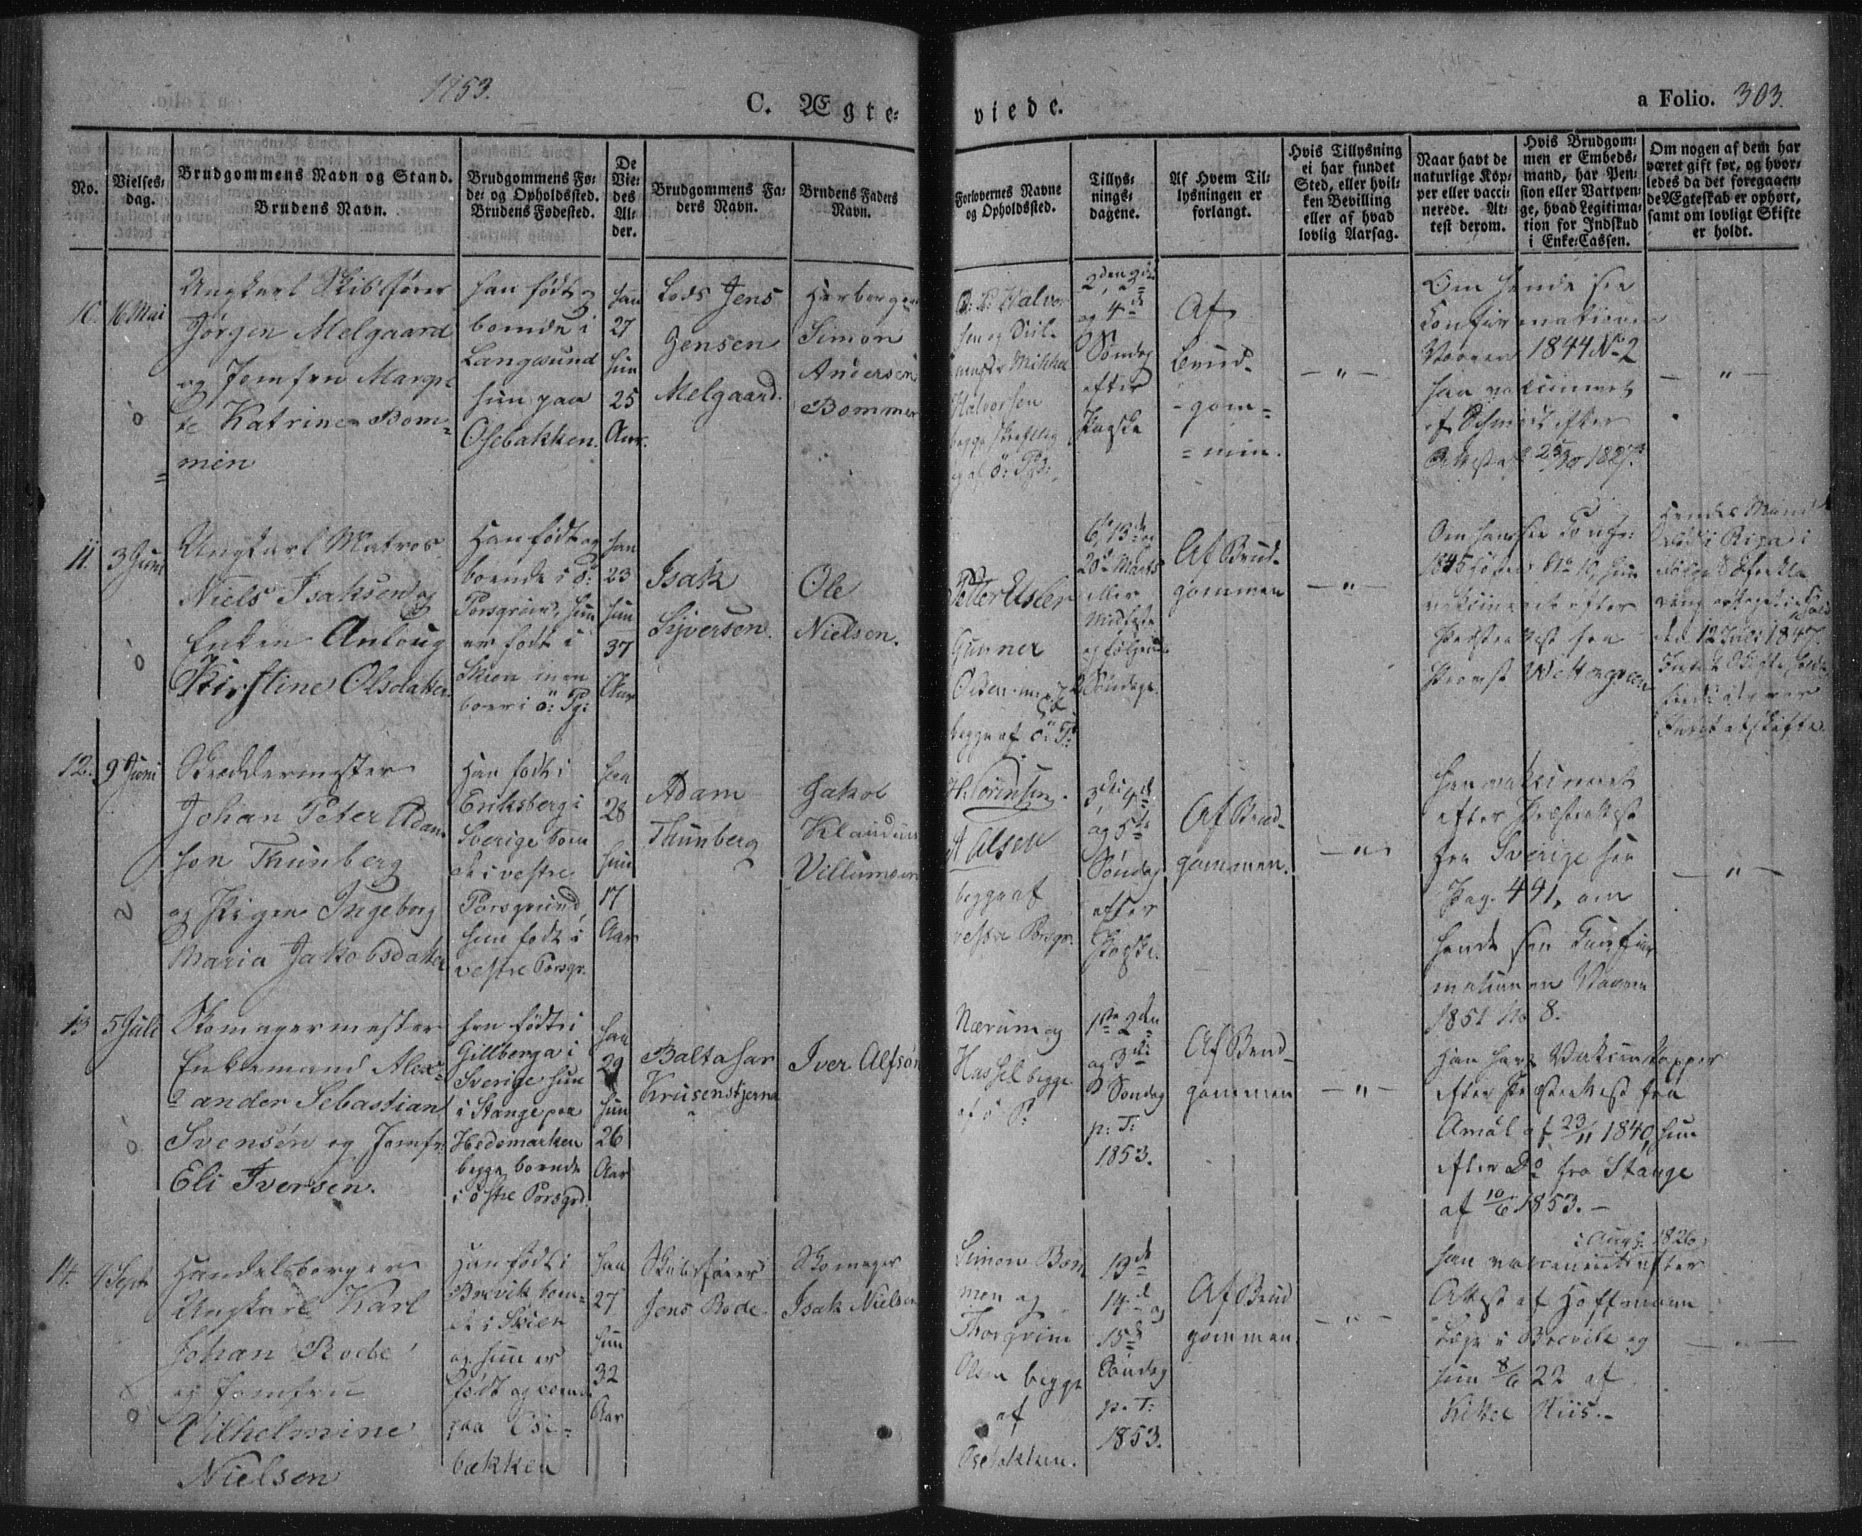 1853.
C. Ægte-
viede.
a Folio. 303.
No.
Vielses-
dag.
Brudgommens Navn og Stand.
Brudens Navn.
Brudgommens Fø-
de- og Opholdssted.
Brudens Fødested.
De
Vie-
des
Al-
der.
Brudgommens Fa-
ders Navn.
Brudens Faders
Navn.
Forlovernes Navne
og Opholdssted.
Tillys-
nings-
dagene.
Af Hvem Til-
lysningen er
forlangt.
Hvis Tillysning
ei har fundet
Sted, eller hvil-
ken Bevilling
eller af hvad
lovlig Aarsag.
Naar havt de
naturlige Kop-
per eller vacci-
nerede. At-
test derom.
Hvis Brudgom-
men er Embeds-
mand, har Pen-
sion eller Vartpen-
ge, hvad Legitima-
tion for Indskud
i Enke-Cassen.
Om nogen af dem har
været gift før, og hvor-
ledes da det foregaaen-
de Ægteskab er ophørt,
samt om lovligt Skifte
er holdt.
10.
16 Mai
Ungkarl Skibsfører
Jørgen Melgaard
og Jomfru Margre
te Katrine Bom-
men
han født og
boende i
Langesund
hun paa
Osebakken.
han
27
hun
25
Aar.
Lods Jens
Jensen
Melgaard.
Simon
Andersen
Bommen
Halvor
sen og
Mikkel
Halvorsen
begge
af ö: Pg:
2den, 3die
og 4de
Søndag
efter
Paaske
Af
Brud-
gom-
men.
- " -
Om hende see
Confirmationen
1844 No 2
han vakcineret
af Schmidt efter
Attest af 23/10 1827.
- " -
11.
3 Juni
Ungkarl Matros
Niels Isaksen og
Enken Anloug
Kirstine Olsdatter
Han født og
boende i ö:
Porsgrund, hun
er født i
Skien men
boer i ö: Pg:
han
23
hun
37
Aar
Isak
Syversen.
Ole
Nielsen.
Petter Elster
Gunner
begge af ö: P:
6te, 13de og
20de Marts
eller
Midfaste
og følgende
2 Søndage.
Af Brud-
gommen
- " -
Om han see Confir:
1845 No 10, hun
vakcineret efter
Præsteattest fra
Provst Wettergreen
Hendes Mand
død i Riga i
følge
den 12 Juli 1847.
12.
9 Juni
Skreddermester
Johan Peter Adam
son Thunberg
og Pigen Ingeborg
Maria Jakobsdatter
Han født i
Eriksberg i
Sverige boen
de i vestre
Porsgrund,
hun født i
vestre Porsgr.
han
28
hun
17
Aar
Adam
Thunberg
Jakob
Klaudius
Villumsen
H. Sörensen.
A Olsen
begge af
vestre Porsgr.
3die, 4de
og 5te
Søndag
efter
Paaske.
Af Brud-
gommen.
- " -
Han vakcineret
efter Præsteattest
fra Sverige see
Pag. 491, om
hende see Confir
mationen Vaaren
1851 No 8.
- " -
13
5 Juli
Skomagermester
Enkemand Alex-
ander Sebastian
Svensen og Jomfr
Eli Iversen.
han født i
Gillberga i
Sverige hun
i Stange paa
Hedemarken
begge boende
i östre Porsgrd.
han
29
hun
26
Aar
Baltasar
Krusenstjerna
Iver Alfsen
Nærum og
Hassel begge
af ö P:
1ste 2den
og 3die
Søndag
p: T:
1853.
Af Brud-
gommen
- " -
Han havt Vakcinekopper
efter Præsteattest fra
Amål af 23/11 1840, hun
efter Do fra Stange
af 10/6 1853. -
14.
9 Sept
Handelsborger
Ungkarl Karl
Johan Rode
og Jomfru
Vilhelmine
Nielsen
Han født i
Brevik boen-
de i Skien
og hun er
født og boen
paa Ose-
bakken
han
27
hun
32
Aar
Skibsfører
Jens Rode.
Skomager
Isak Nielsen
Simon Bom
men og
Thorgrim
Olsen begge
af
Osebakken.
13de
14de og
15de
Søndag
p. T:
1853.
Af Brud
gommen
- " -
i Aug. 1826
han vakcineret efter
Attest af Hoffmann
Læge i Brevik og
hun 8/6 22 af
Kittel Riis. -
- " -